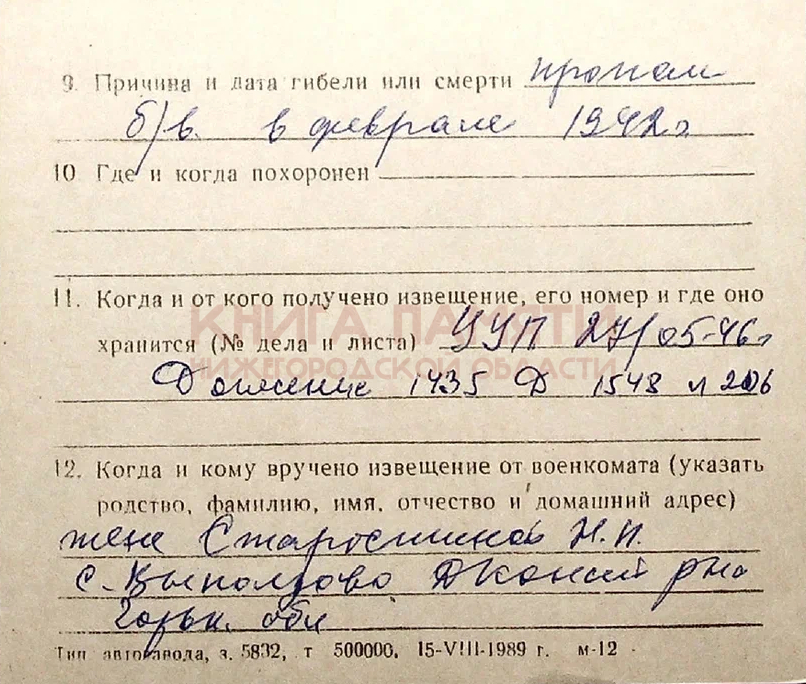 9. Причина и дата гибели или смерти пропал
б/в. в феврале 1942г
10. Где и когда похоронен
11. Когда и от кого получено извещение, его номер и где оно
КНИГА ПАМЯТИ
хранится (№ дела и листа) УУП 27/05-46г
НИЖЕГОРОДСКОЙ ОБЛАСТИ
1435 Д 1548 л 206
12. Когда и кому вручено извещение от военкомата (указать
родство, фамилию, имя, отчество и домашний адрес)
жене Старостиной Н.П.
с. Выползово р-на
Горьк. обл
Тип автозавода, з. 5832, т 500000. 15-VIII-1989 г. м-12